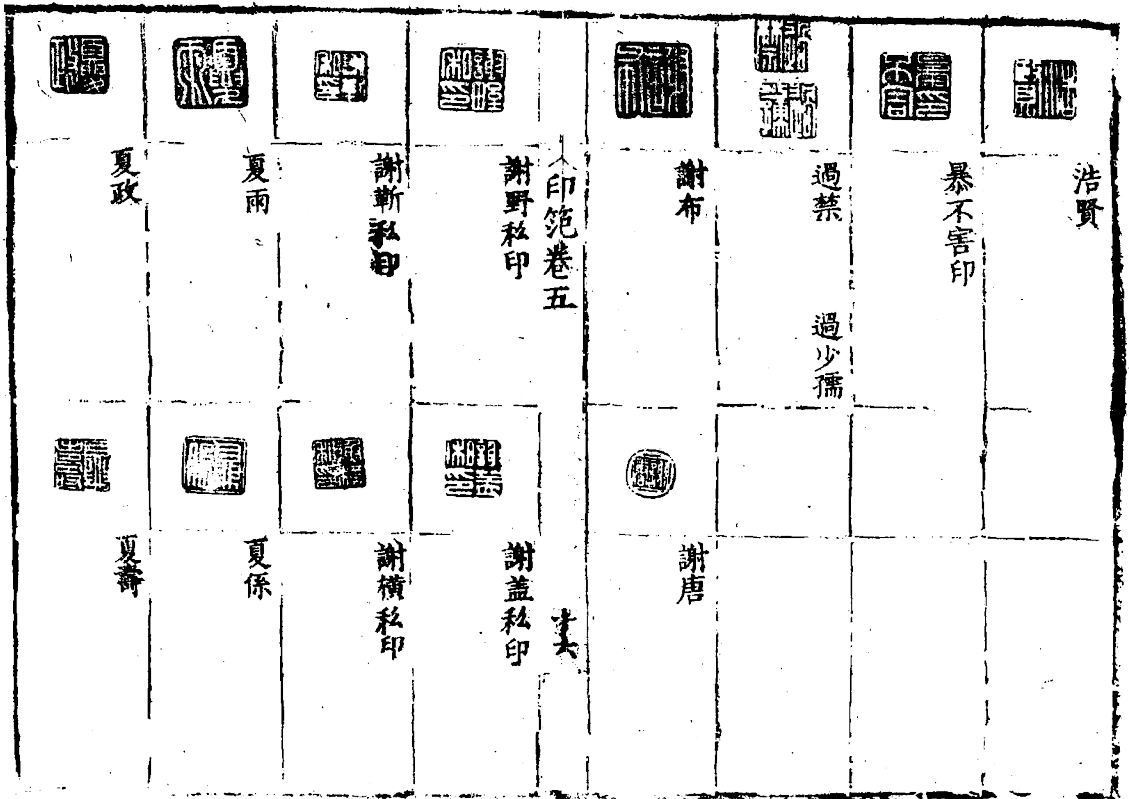 浩賢
暴不害印
過禁
過少孺
謝布
謝唐
印笵卷五
謝野私印
謝盖私印
謝靳私印
謝横私印
夏雨
夏係
夏政
夏壽